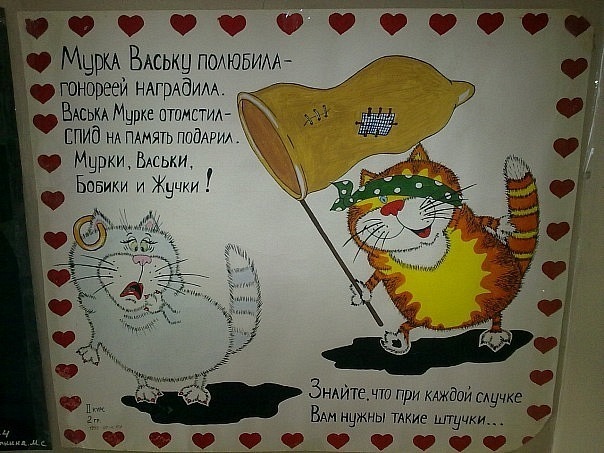 Мурка Ваську полюбила-
гонореей наградила.
Васька Мурке отомстил-
СПИД на память подарил.
Мурки, Васьки,
Бобики и Жучки!
Знайте, что при каждой случке
Вам нужны такие штучки...
II курс
2 гр.